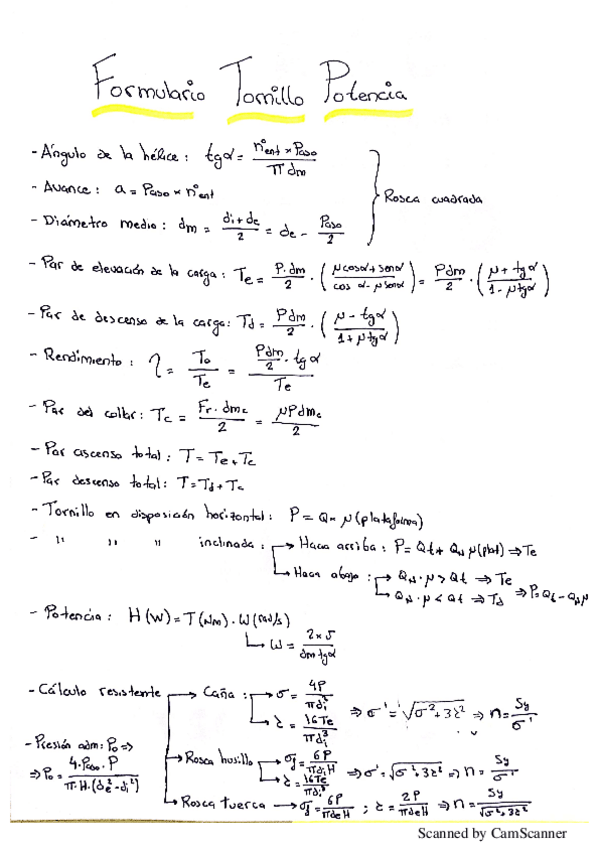 Formulario Tornillo Potencia
- Ángulo de la hélice: tgα = nºent × Paso / π dm
- Avance: a = Paso × nºent
- Diámetro medio: dm = (di + de) / 2 = de - Paso / 2
Rosca cuadrada
- Par de elevación de la carga: Te = P·dm / 2 · (μcosα + senα / cos α - μsenα) = Pdm / 2 · (μ + tgα / 1 - μtgα)
- Par de descenso de la carga: Td = Pdm / 2 · (μ - tgα / 1 + μtgα)
- Rendimiento: η = To / Te = (Pdm / 2 · tgα) / Te
- Par del collar: Tc = Fr · dmc / 2 = μPdmc / 2
- Par ascenso total: T = Te + Tc
- Par descenso total: T = Td + Tc
- Tornillo en disposición horizontal: P = Q × μ (plataforma)
- " " " inclinada: → Hacia arriba: P = Qt + QN μ(plat) ⇒ Te
→ Hacia abajo: → QN · μ > Qt ⇒ Te
→ QN · μ < Qt ⇒ Td ⇒ P = Qt - QNμ
- Potencia: H(W) = T(Nm) · W(rad/s)
→ ω = 2 × v / dm tgα
- Cálculo resistente → Caña: → σ = 4P / πdi²
→ τ = 16Te / πdi³ ⇒ σ' = √σ² + 3τ² ⇒ n = Sy / σ'
- Presión adm: Po ⇒
⇒ Po = 4·Paso·P / π·H·(de² - di²)
→ Rosca husillo → σf = 6P / πdiH
→ τ = 16Te / πdi³ ⇒ σ' = √σ² + 3τ² ⇒ n = Sy / σ'
→ Rosca tuerca → σf = 6P / πdeH ; τ = 2P / πdeH ⇒ n = Sy / √σ² + 3τ²
Scanned by CamScanner